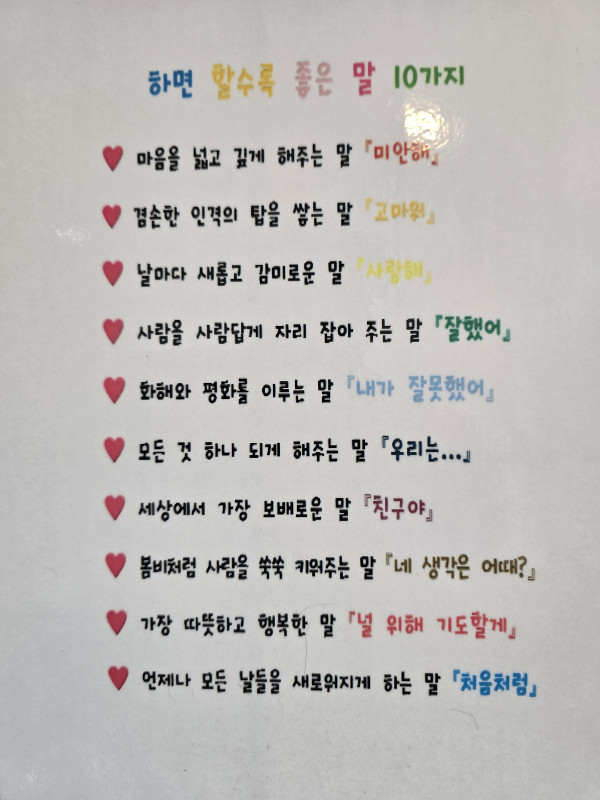 하면 할수록 좋은 말 10가지
♥ 마음을 넓고 깊게 해주는 말 『미안해』
♥ 겸손한 인격의 탑을 쌓는 말 『고마워』
♥ 날마다 새롭고 감미로운 말 『사랑해』
♥ 사람을 사람답게 자리 잡아 주는 말 『잘했어』
♥ 화해와 평화를 이루는 말 『내가 잘못했어』
♥ 모든 것 하나 되게 해주는 말 『우리는...』
♥ 세상에서 가장 보배로운 말 『친구야』
♥ 봄비처럼 사람을 쑥쑥 키워주는 말 『네 생각은 어때?』
♥ 가장 따뜻하고 행복한 말 『널 위해 기도할게』
♥ 언제나 모든 날들을 새로워지게 하는 말 『처음처럼』